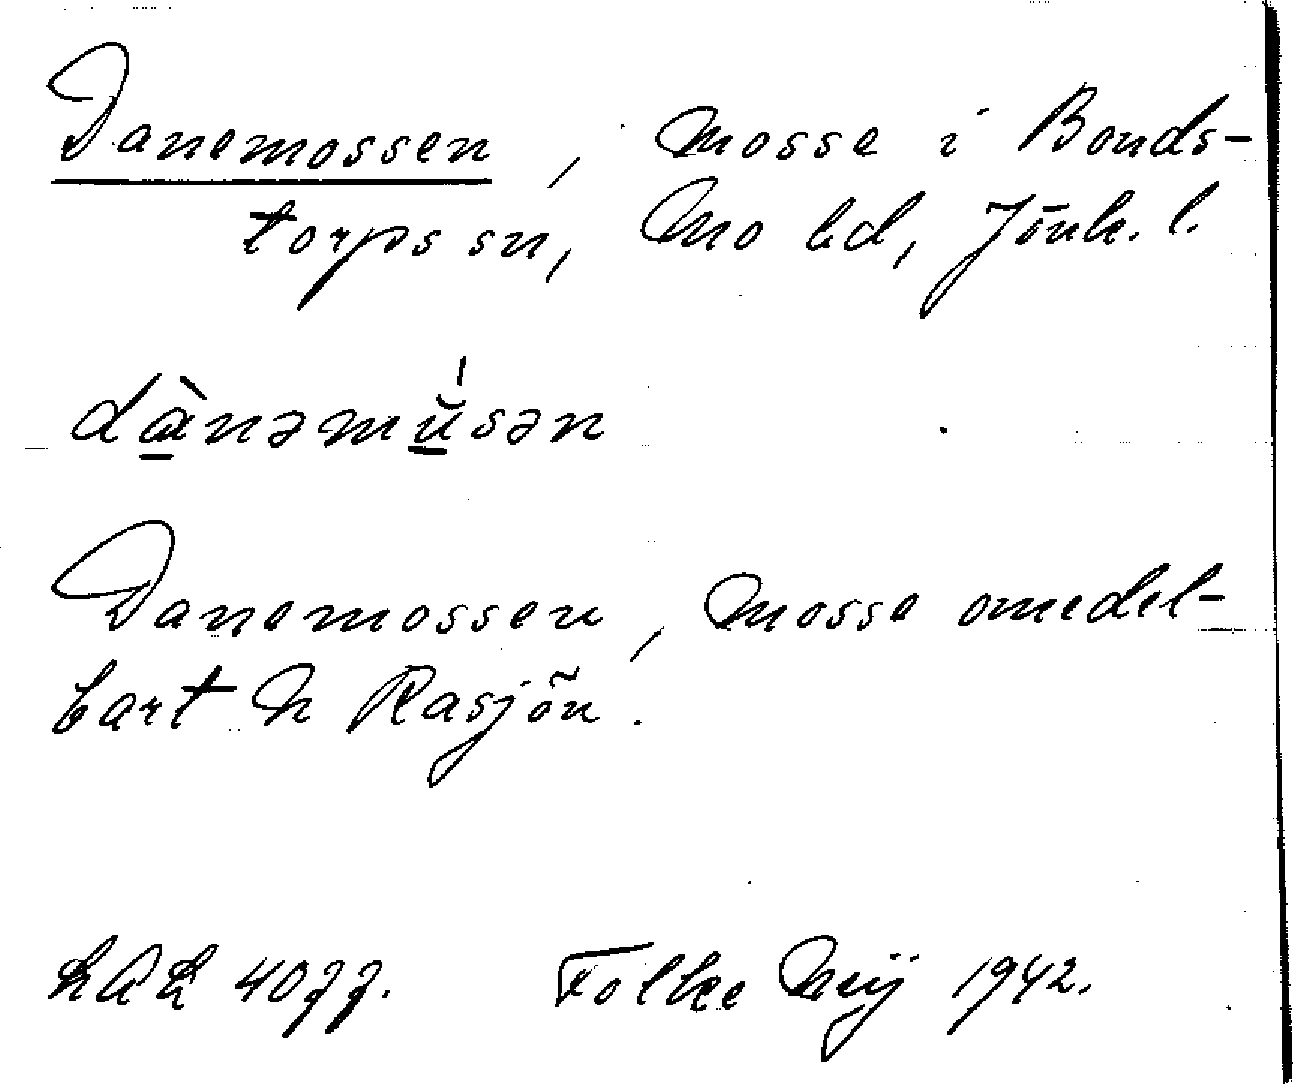 Danemossen, mosse i Bonds-
torps sn, Mo hd, Jönk. l.
dànəmŭ́sən
Danemossen, mosse omedel-
bart N Rasjön.
LAL 4077. Folke Meij 1942.